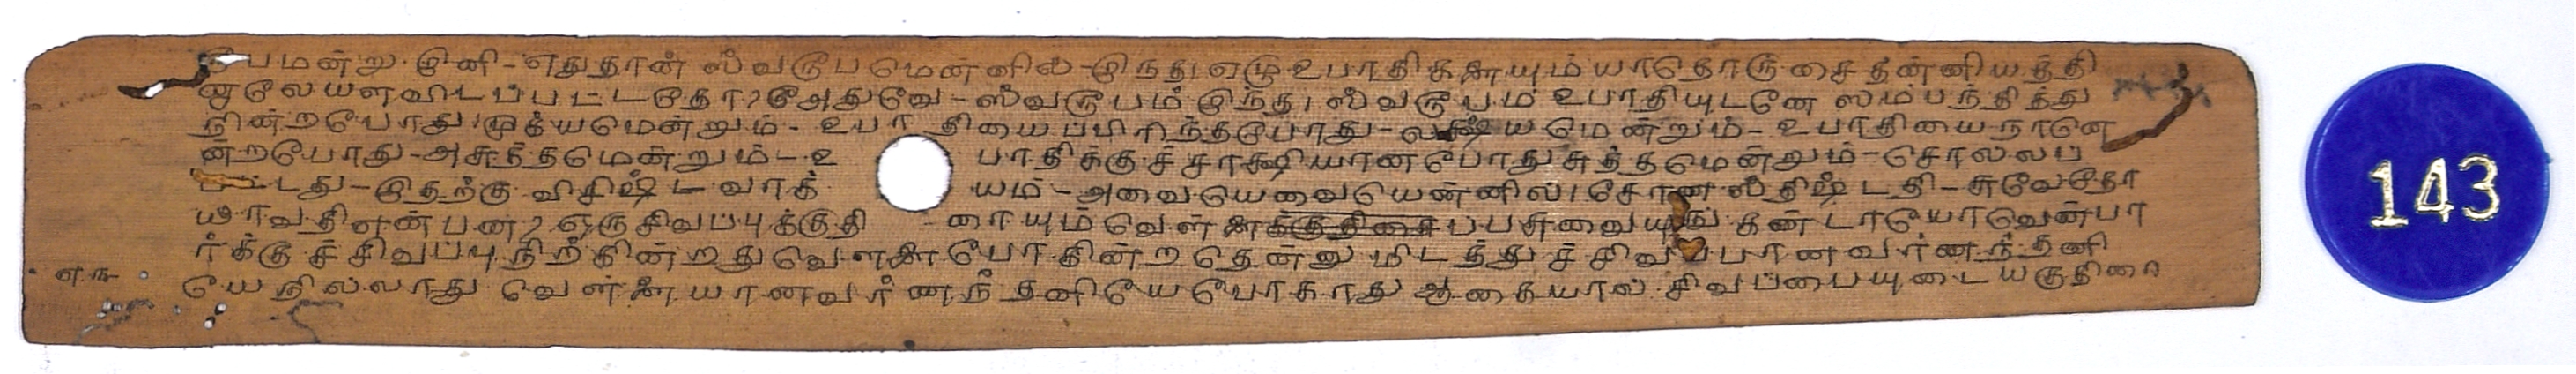 ரூபமன்று இனி-எதுதான் ஸ்வரூபமென்னில்-இந்த ஏழு உபாதிகளையும் யாதொரு சைதன்னியத்தி
னாலேயளவிடப்பட்டதோ? அதுவே-ஸ்வரூபம் இந்த ஸ்வரூபம் உபாதியுடனே ஸம்பந்தித்து
நின்றபோது முக்யமென்றும்- உபாதியைப்பிரிந்தபோது-லக்ஷியமென்றும்-உபாதியைநானெ
ன்றபோது-அசுத்தமென்றும்-உ பாதிக்குச்சாக்ஷியானபோது சுத்தமென்றும்-சொல்லப்
பட்டது-இதற்கு விசிஷ்டவாக் யம்-அவையெவையென்னில் சோண ஸ்திஷ்டதி-சுவேதோ
தாவதிஎன்பன? ஒருசிவப்புக்குதி ரையும் வெள்ளைப்பசுவையுங் கண்டாயோவென்பா
ர்க்குச்சிவப்பு நிற்கின்றது வெள்ளை போகின்றதென்னுமிடத்துச் சிவப்பானவர்ணந்தனி
யேநில்லாது வெள்ளையானவர்ணந் தனியேபோகாது ஆகையால் சிவப்பையுடையகுதிரை
143